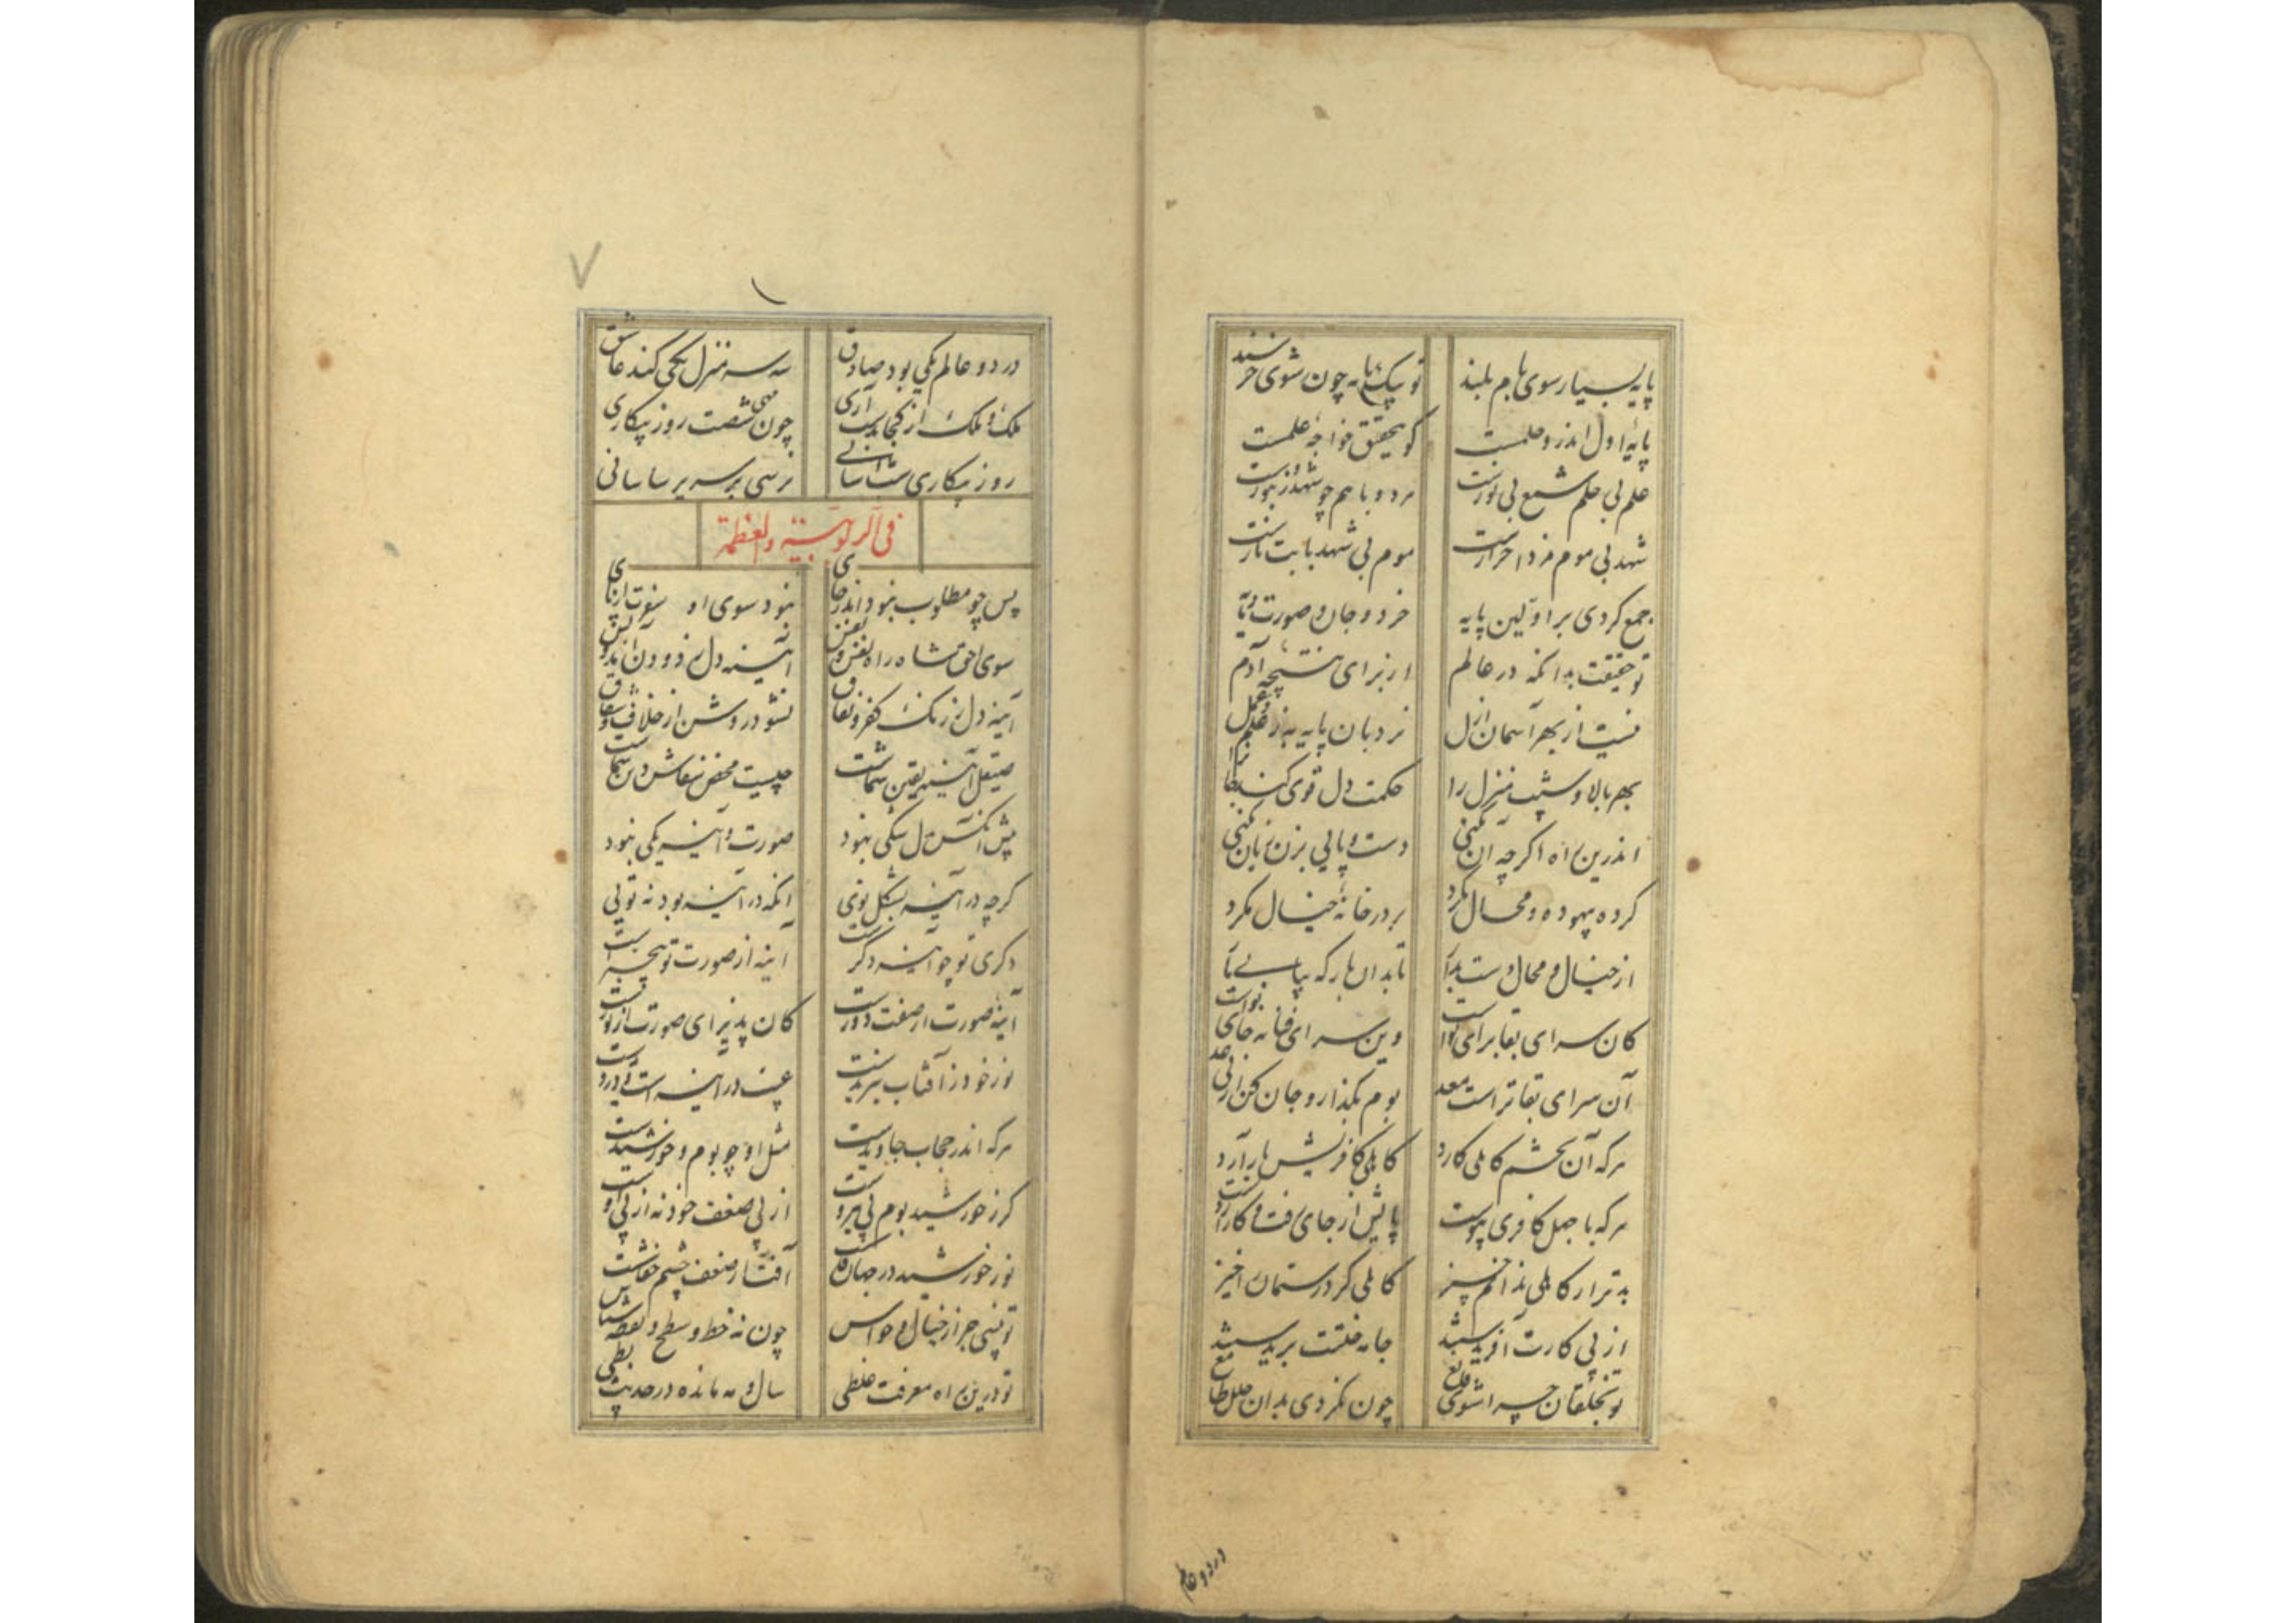 پایه بسیار سوی بام بلند تو بیک پایه چون شوی خرسند
پایه اول اندرو حلمست کو بتحقیق خواجه علمست
علم بی حلم شمع بی نورست هر دو باهم چو شهد زنبورست
شهد بی موم مزد احرارست موم بی شهد بابت نارست
جمع کردی بر اولین پایه خرد و جان و صورت و مایه
تو حقیقت بدانکه در عالم از برای نتیجه آدم
نیست از بهر آسمان ازل نردبان پایه به ز علم و عمل
بهر بالا و شیب منزل را حکمت دل قوی کند
اندرین راه اگرچه آن نکنی دست و پایی بزن زیان نکنی
کرده بیهوده و محال نکرد بر در خانه خیال نکرد
از خیال و محال دست بدار تا بدان بارکه بیابی بار
کان سرای بقا برای تو است وین سرای فنا نه جای تو است
آن سرای بقا تراست معد یوم بگذار و جان کن از پی غد
هرکه آن تخم کاهلی کارد کاهلی کافریش بار آرد
هرکه با جهل کافری پیوست پایش از جای رفت و کار از دست
بدتر از کاهلی ندانم چیز کاهلی کرد رستمان را حیز
از پی کارت آفریدستند جامه خلقتت بریدستند
تو بخلقان چرا شوی قانع چون نکردی بدان حلل طامع
در دو عالم
ملک و ملک از کجا بدست آری چون مهی شصت روز بیکاری
روز بیکاری و شب آسانی نرسی بر سریر ساسانی
در دو عالم یکی بود صادق سه سه منزل یکی کند عاشق
فی الربوبیة والعظمة
پس چو مطلوب نبود اندر جای نبود سوی او سفرت از پای
سوی حق شاه راه نفس و نفس آینه دل زدودن آمد و بس
آینه دل ز زنگ کفر و نفاق نشود روشن از خلاف و شقاق
صیقل آینه یقین شماست چیست محض صفاش دین شماست
پیش آنکش بدل شکی نبود صورت و آینه یکی نبود
گرچه در آینه بشکل بوی آنکه در آینه بود نه توی
دگری تو چو آینه دگرست آینه از صورت تو بیخبرست
آینه صورت از صفت دورست کان پذیرای صورت از نورست
نور خود ز آفتاب نبریدست عیب در آینه است و در دیدست
هرکه اندر حجاب جاویدست مثل او چو بوم و خورشیدست
گر ز خورشید بوم بی نیروست از پی ضعف خود نه از پی اوست
نور خورشید در جهان فاشست آفت از ضعف چشم خفاشست
تو نبینی جز از خیال و حواس چون نه خط و سطح و نقطه شناس
تو درین راه معرفت غلطی سال و مه مانده در حدیث بطی